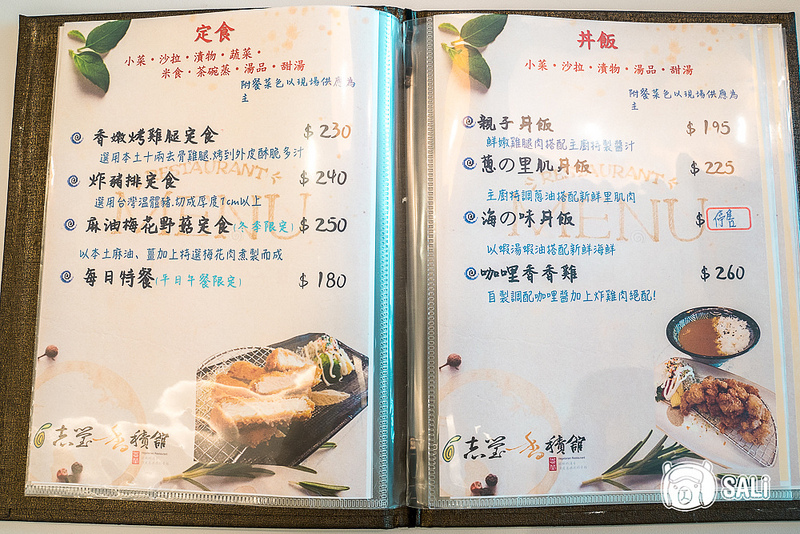 定食
小菜・沙拉・漬物・蔬菜・
米食・茶碗蒸・湯品・甜湯
附餐菜色以現場供應為
主
香嫩烤雞腿定食 $230
選用本土十兩去骨雞腿,烤到外皮酥脆多汁
炸豬排定食 $240
選用台灣溫體豬,切成厚度1cm以上
麻油梅花野菇定食(冬季限定) $250
以本土麻油、薑加上特選梅花肉煮製而成
每日特餐(平日午餐限定) $180
RESTAURANT
MENU
香積館
丼飯
小菜・沙拉・漬物・湯品・甜湯
附餐菜色以現場供應為
主
親子丼飯 $195
鮮嫩雞腿肉搭配主廚特製醬汁
蔥の里肌丼飯 $225
主廚特調蔥油搭配新鮮里肌肉
海の味丼飯 $停售
以蝦湯蝦油搭配新鮮海鮮
咖哩香香雞 $260
自製調配咖哩醬加上炸雞肉絕配!
RESTAURANT
MENU
香積館
SALI